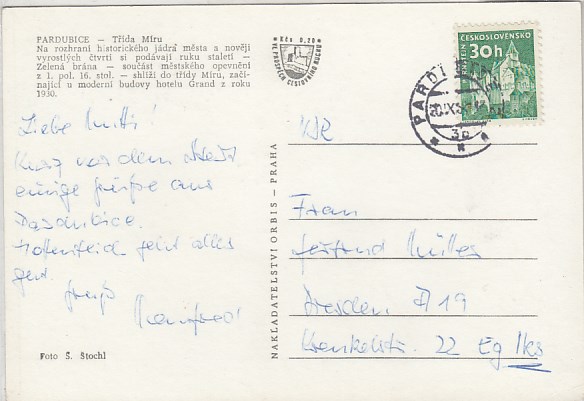 PARDUBICE — Třída Míru
Na rozhraní historického jádra města a nověji
vyrostlých čtvrtí si podávají ruku staletí —
Zelená brána — součást městského opevnění
z 1. pol. 16. stol. — shlíží do třídy Míru, začí-
nající u moderní budovy hotelu Grand z roku
1930.
Kčs 0,20
VE PROSPĚCH CESTOVNÍHO RUCHU
ČESKOSLOVENSKO
30h
PARDUBICE
3b
Liebe Mutti!
Kurz vor dem Start
einige Grüße aus
Pardubice.
Hoffentlich geht alles
gut.
Gruß
Manfred!
NAKLADATELSTVÍ ORBIS — PRAHA
Frau
Gertrud Müller
Dresden A 19
22 Eg lks
Foto Š. Štochl